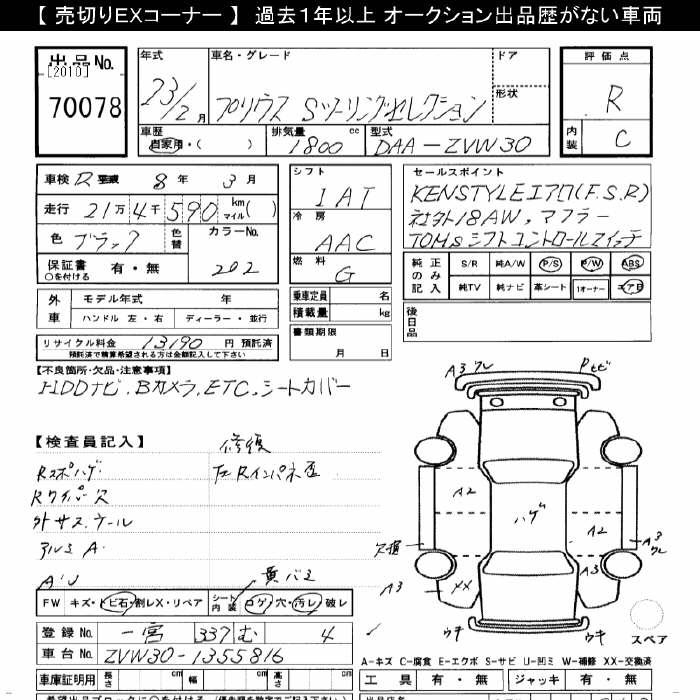 【 売切りEXコーナー 】 過去1年以上 オークション出品歴がない車両
出品No. [2010] 70078
年式 23/2月
車名・グレード プリウス Sツーリングセレクション
ドア
形状
評価点 R
内装 C
車歴 自家用・( )
排気量 1800 cc
型式 DAA-ZVW30
車検 R 8年 3月
走行 21万4千590 km マイル( )
色 ブラック 色替
カラーNo. 202
保証書 ○を付ける 有・無
シフト IAT
冷房 AAC
燃料 G
セールスポイント
KENSTYLEエアロ(F.S.R)
社外18AW、マフラー
TOMsシフトコントロールスイッチ
純正のみ記入 S/R 純A/W P/S P/W ABS
純TV 純ナビ 革シート 1オーナー エアB
外車 モデル年式 年
ハンドル 左・右 ディーラー・並行
乗車定員 名
積載量 kg
書類期限
月 日
後日品
リサイクル料金 13190 円 預託済
預託済で精算希望される方は金額記入して下さい
【不良箇所・欠品・注意事項】
HDDナビ、Bカメラ、ETC、シートカバー
【検査員記入】
修復
Rスポハゲ
左Rインパネ歪
Rワイパー欠
外サス、クール
アルミ A.
黄バミ
FW キズ・トビ石・割レX・リペア
シート内装 コゲ・穴・汚レ・破レ
登録No. 一宮 337 む 4
車台No. ZVW30-1355816
車庫証明用 長さ cm 幅 cm 高さ cm
A3 ワレ
Pセビ
A2
ハゲ
A2
欠損
A3 ワレ
A3
XX
A3
ウキ
ウキ
スペア
A-キズ C-腐食 E-エクボ S-サビ U-凹ミ W-補修 XX-交換済
工具 有・無 ジャッキ 有・無